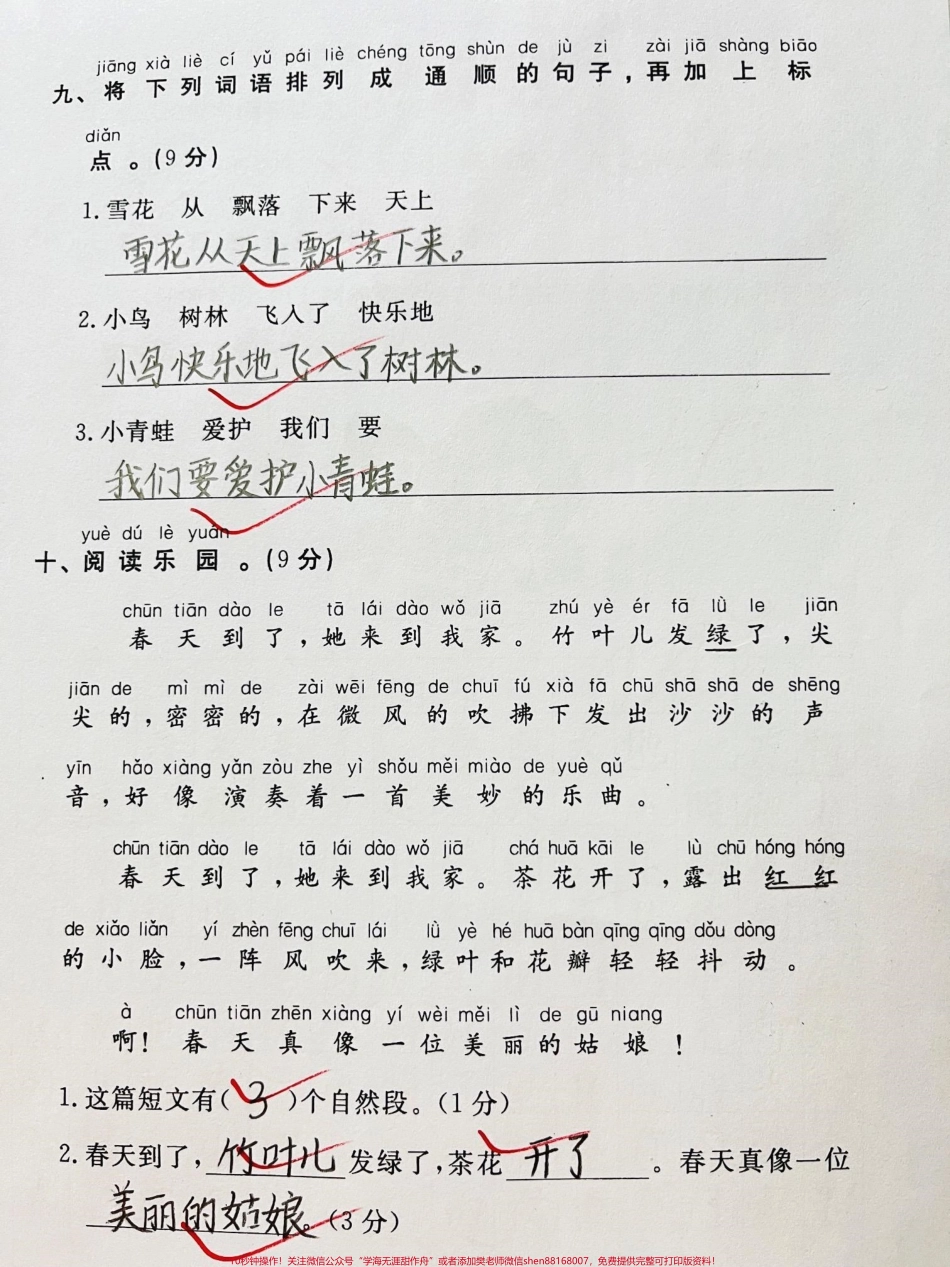 jiāng xià liè cí yǔ pái liè chéng tōng shùn de jù zi zài jiā shàng biāo
九、将下列词语排列成通顺的句子,再加上标
diǎn
点。(9分)
1.雪花 从 飘落 下来 天上
雪花从天上飘落下来。
2.小鸟 树林 飞入了 快乐地
小鸟快乐地飞入了树林。
3.小青蛙 爱护 我们 要
我们要爱护小青蛙。
yuè dú lè yuán
十、阅读乐园。(9分)
chūn tiān dào le tā lái dào wǒ jiā zhú yè ér fā lǜ le jiān
春天到了,她来到我家。竹叶儿发绿了,尖
jiān de mì mì de zài wēi fēng de chuī fú xià fā chū shā shā de shēng
尖的,密密的,在微风的吹拂下发出沙沙的声
yīn hǎo xiàng yǎn zòu zhe yì shǒu měi miào de yuè qǔ
音,好像演奏着一首美妙的乐曲。
chūn tiān dào le tā lái dào wǒ jiā chá huā kāi le lù chū hóng hóng
春天到了,她来到我家。茶花开了,露出红红
de xiǎo liǎn yí zhèn fēng chuī lái lǜ yè hé huā bàn qīng qīng dǒu dòng
的小脸,一阵风吹来,绿叶和花瓣轻轻抖动。
à chūn tiān zhēn xiàng yí wèi měi lì de gū niang
啊!春天真像一位美丽的姑娘!
1.这篇短文有(3)个自然段。(1分)
2.春天到了,竹叶儿发绿了,茶花开了。春天真像一位
美丽的姑娘。(3分)
10秒钟操作!关注微信公众号“学海无涯甜作舟”或者添加樊老师微信shen88168007,免费提供完整可打印版资料!